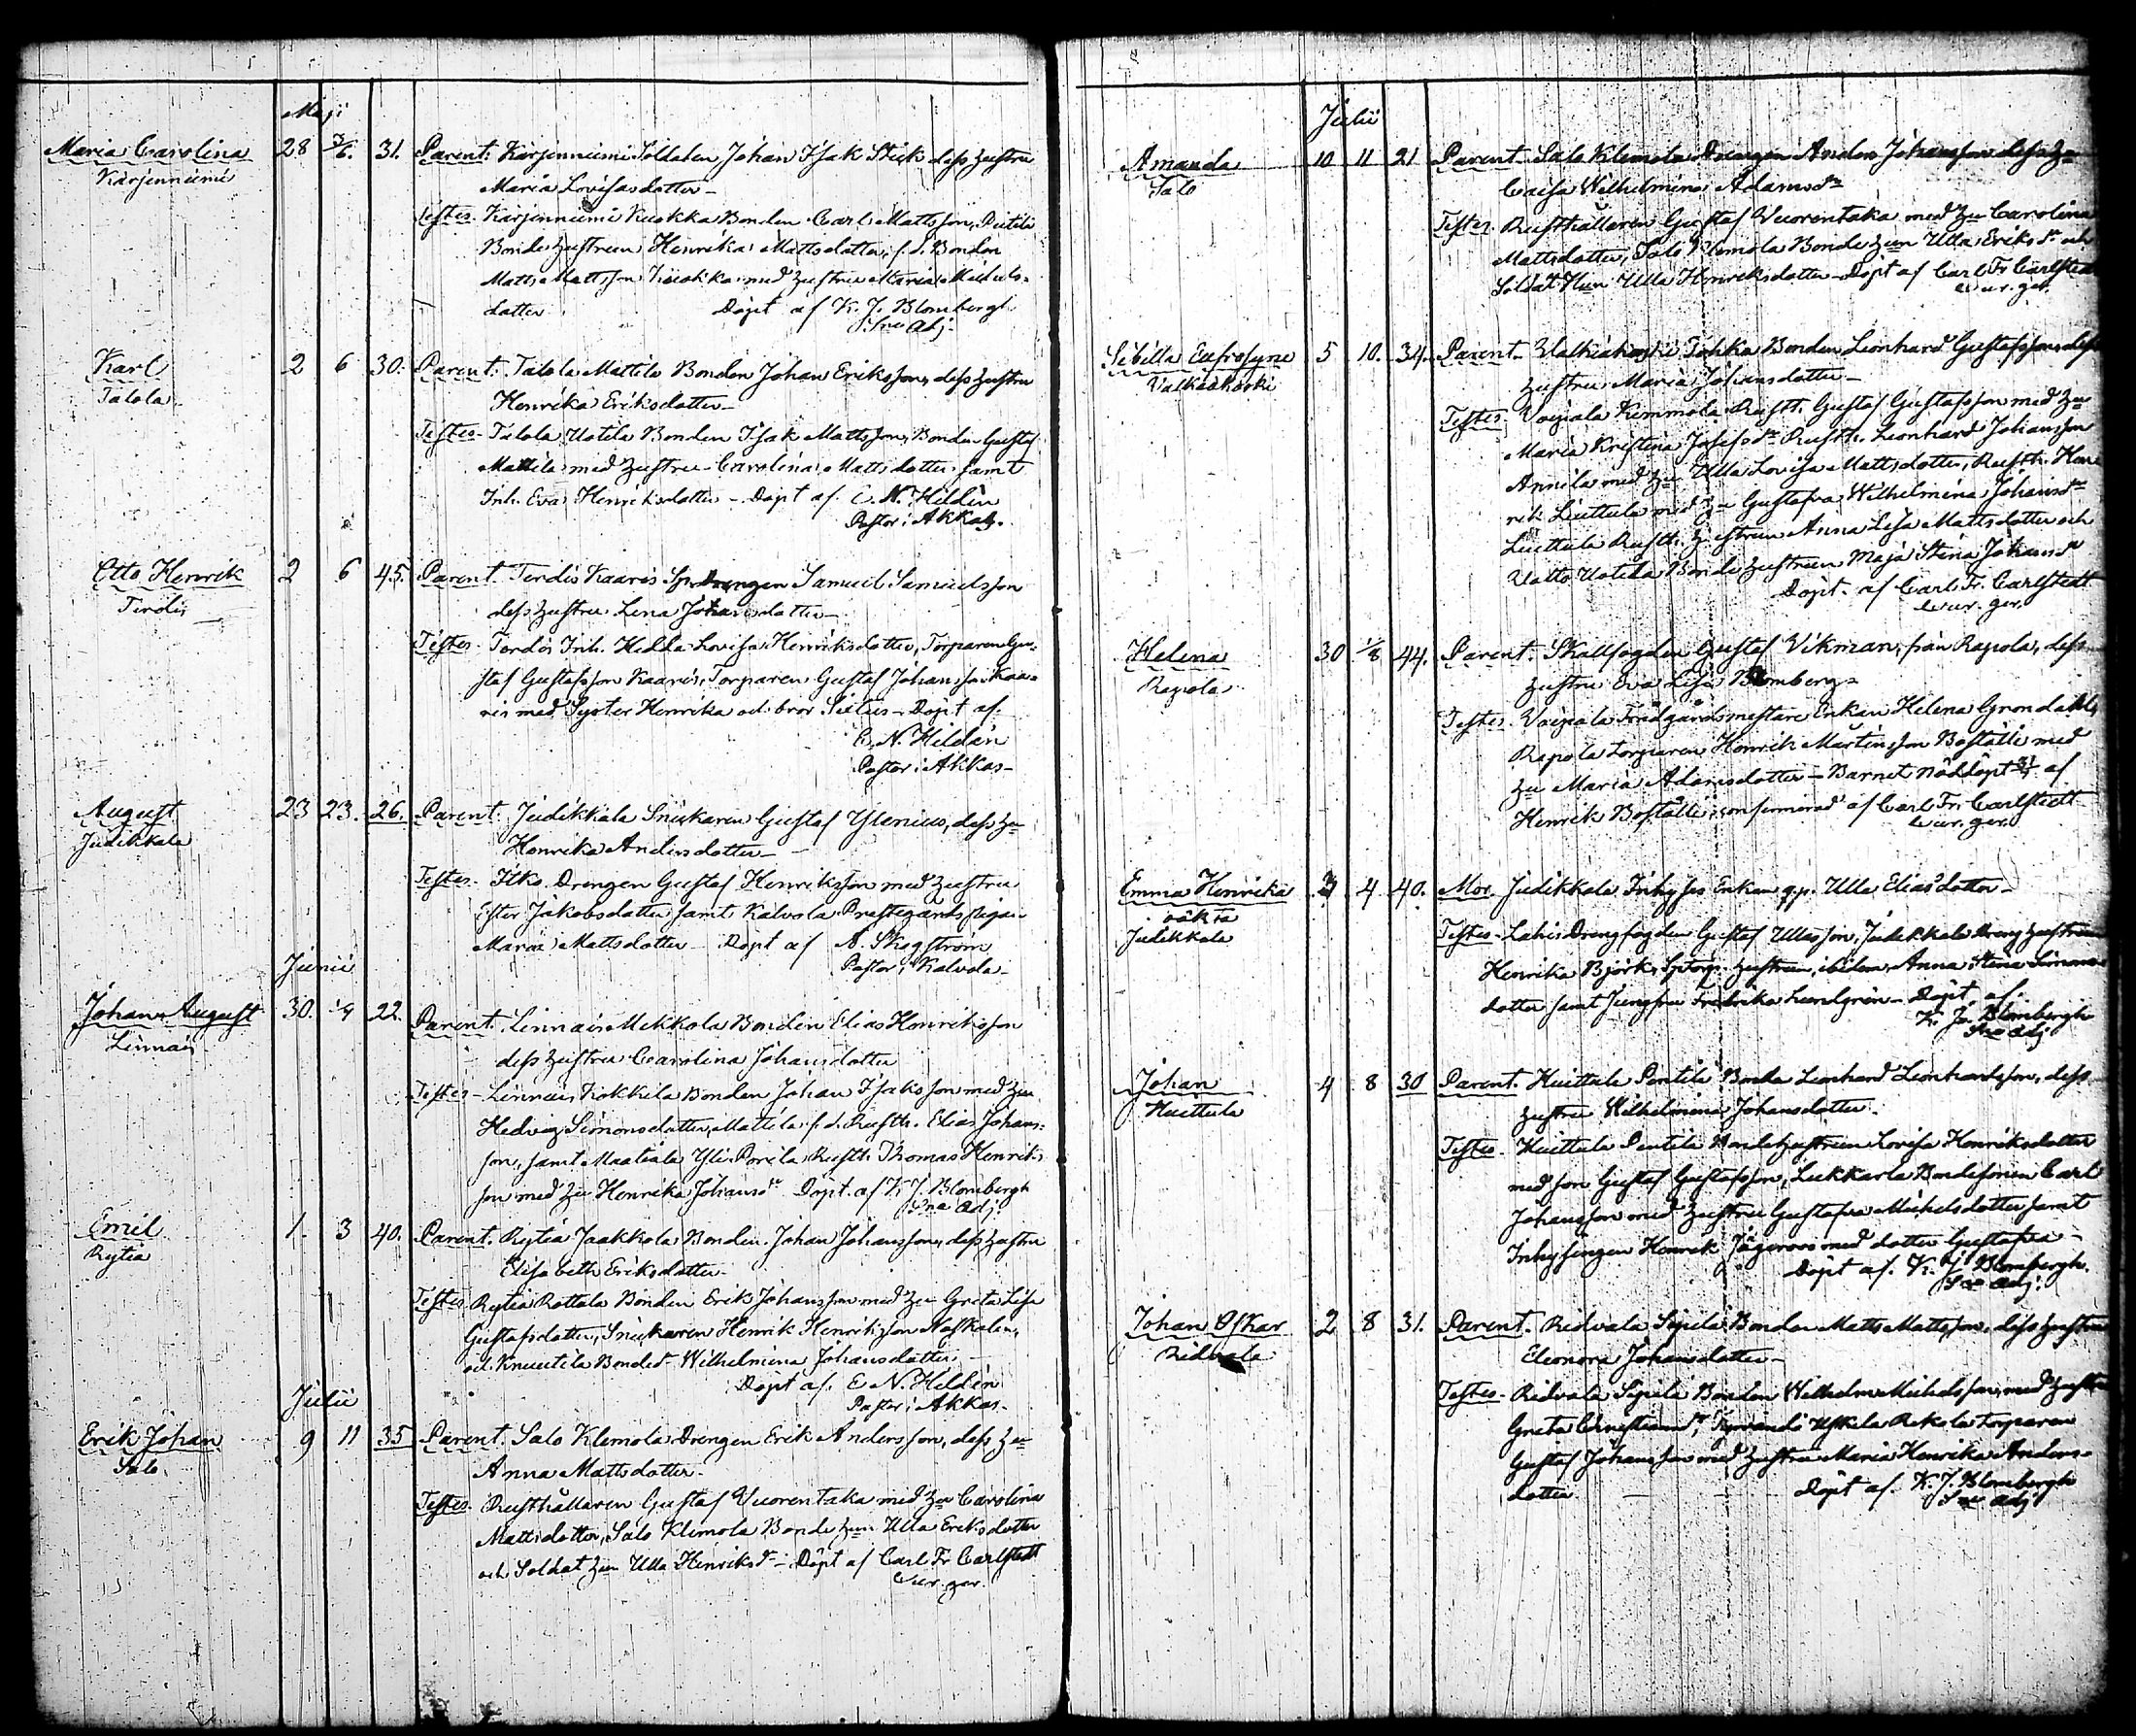 Maji
Maria Carolina 28 3/6. 31. Parent. Kärjenniemi Soldaten Johan Isak Stick dess hustru
Kärjenniemi Maria Lovisasdotter
Testes. Kärjenniemi Kuokka Bonden Carl Mattsson,
Bonde hustrun Henrika Mattsdotter, f.d. Bonden
Matts Mattsson Kuokka med hustru Maria Michels-
dotter Döpt af K. J. Blombergh
Sne Adj.
Karl 2 6 30. Parent. Talola Mattila Bonden Johan Eriksson, dess hustru
Talola Henrika Eriksdotter
Testes. Talola Uotila Bonden Isak Mattsson, Bonden Gustaf
Mattila med hustru Carolina Mattsdotter samt
Inh. Eva Henriksdotter – Döpt af E. N. Hildén
Pastor i Akkas.
Otto Henrik 2 6 45. Parent. Terdis Kaaris Drengen Samuel Samuelsson
Terdis dess hustru Lena Johansdotter
Testes. Terdis Inh. Hedda Lovisa Henriksdotter, Torparen Gu-
staf Gustafsson Kaaris, Torparen Gustaf Johansson Kaa-
ris med Syster Henrika och bror Sixtus – Döpt af
E. N. Hildén
Pastor i Akkas
August 23 23. 26. Parent. Judikkala Snickaren Gustaf Ylenius, dess hu
Judikkala Henrika Andersdotter
Testes. Drengen Gustaf Henriksson med hustru
Ester Jakobsdotter samt Kalvola Prestegårdspigan
Maria Mattsdotter Döpt af A. Skogström
Pastor i Kalvola
Junii
Johan August 30. 1/4 22. Parent. Linnais Mekkola Bonden Elias Henriksson
Linnais dess hustru Carolina Johansdotter
Testes – Linnais Kokkila Bonden Johan Isaksson med hu
Hedvig Simonsdotter, Mattila f.d. Rusth. Elias Johans-
son, samt Maatiala Yli Porila Rusth. Thomas Henriks-
son med hu Henrika Johansdr. Döpt af K. J. Blombergh
Sne Adj.
Emil 1. 3 40. Parent. Rytiä Jaakkola Bonden Johan Johansson, dess hustru
Rytiä Elisabeth Eriksdotter
Testes Rytiä Rottala Bonden Erik Johansson med hu Greta Lisa
Gustafsdotter, Snickaren Henrik Henriksson
och Knuutila Bonded. Wilhelmina Johansdotter
Döpt af E. N. Hildén
Pastor i Akkas
Julii
Erik Johan 9 11 35 Parent. Salo Klemola Drengen Erik Andersson, dess hu
Salo Anna Mattsdotter
Testes. Rusthållaren Gustaf Vuorentaka med hu Carolina
Mattsdotter, Salo Klemola Bonde hun Ulla Eriksdotter
och Soldat hun Ulla Henriksdr – Döpt af Carl Fr Carlstedt
cur. ger.
Julii
Amanda 10 11 21 Parent. Salo Klemola Drengen Anders Johansson dess hu
Salo Caisa Wilhelmina Adamsdr
Testes. Rusthållaren Gustaf Vuorentaka med hu Carolina
Mattsdotter, Salo Klemola Bonde hun Ulla Eriksdr och
Soldat Hun Ulla Henriksdotter – Döpt af Carl Fr Carlstedt
cur. ger.
Sibilla Eufrosyne 5 10. 34. Parent. Valkiakoski Tohka Bonden Leonhard Gustafsson, dess
Valkiakoski hustru Maria Johansdotter
Testes. Voipala Kemmola Rusth. Gustaf Gustafsson med hu
Maria Kristina Josefsdr Rusth. Leonhard Johansson
Annila med hu Ulla Lovisa Mattsdotter, Rusth. Hen-
rik Liuttula med hu Gustafva Wilhelmina Johansdr
Liuttula Rusth. hustrun Anna Lisa Mattsdotter och
Uotila Bonde hustrun Maja Stina Johansdr
Döpt af Carl Fr. Carlstedt
cur. ger.
Helena 30 1/8 44. Parent. Skallfogden Gustaf Vikman, från Rapola, dess
Rapola hustru Eva Lisa Blomberg
Testes. Voipala Trädgårdsmestare Enkan Helena Grondahl,
Rapola Torparen Henrik Mårtensson Boställe med
hu Maria Adamsdotter – Barnet nöddöpt 31/7 af
Henrik Boställe, confirmerad af Carl Fr. Carlstedt
cur. ger.
Emma Henrika 3 4 40. Mor. Judikkala Inhyses Enkan q.p. Ulla Eliasdotter
oäkta
Judikkala
Testes. Lahis Drengfogden Gustaf Ullasson, Judikkala Dreng hustrun
Henrika Björk, Sptorp. hustrun, ibidem Anna Stina Simons-
dotter samt Jungfru Fredrika Lundgrén – Döpt af
K. J. Blombergh
Sne Adj
Johan 4 8 30 Parent. Huittula Pentila Bonden Leonhard Leonhardsson, dess
Huittula hustru Wilhelmina Johansdotter
Testes. Huittula Pentila Bondehustrun Lovisa Henriksdotter
med son Gustaf Gustafsson, Lukkarla Bondesonen Carl
Johansson med hustru Gustafva Michelsdotter samt
Inhysingen Henrik Jägerroos med dotter Gustafva –
Döpt af K. J. Blombergh.
Sne Adj.
Johan Oskar 2 8 31. Parent. Ridvala Sipilä Bonden Matts Mattsson, dess hustru
Ridvala Eleonora Johansdotter
Testes. Ridvala Sipilä Bonden Wilhelm Michelsson, med hustru
Greta Christiansdr, Uskela Rekola torparen
Gustaf Johansson med hustru Maria Henrika Anders-
dotter Döpt af K. J. Blombergh
Sne Adj